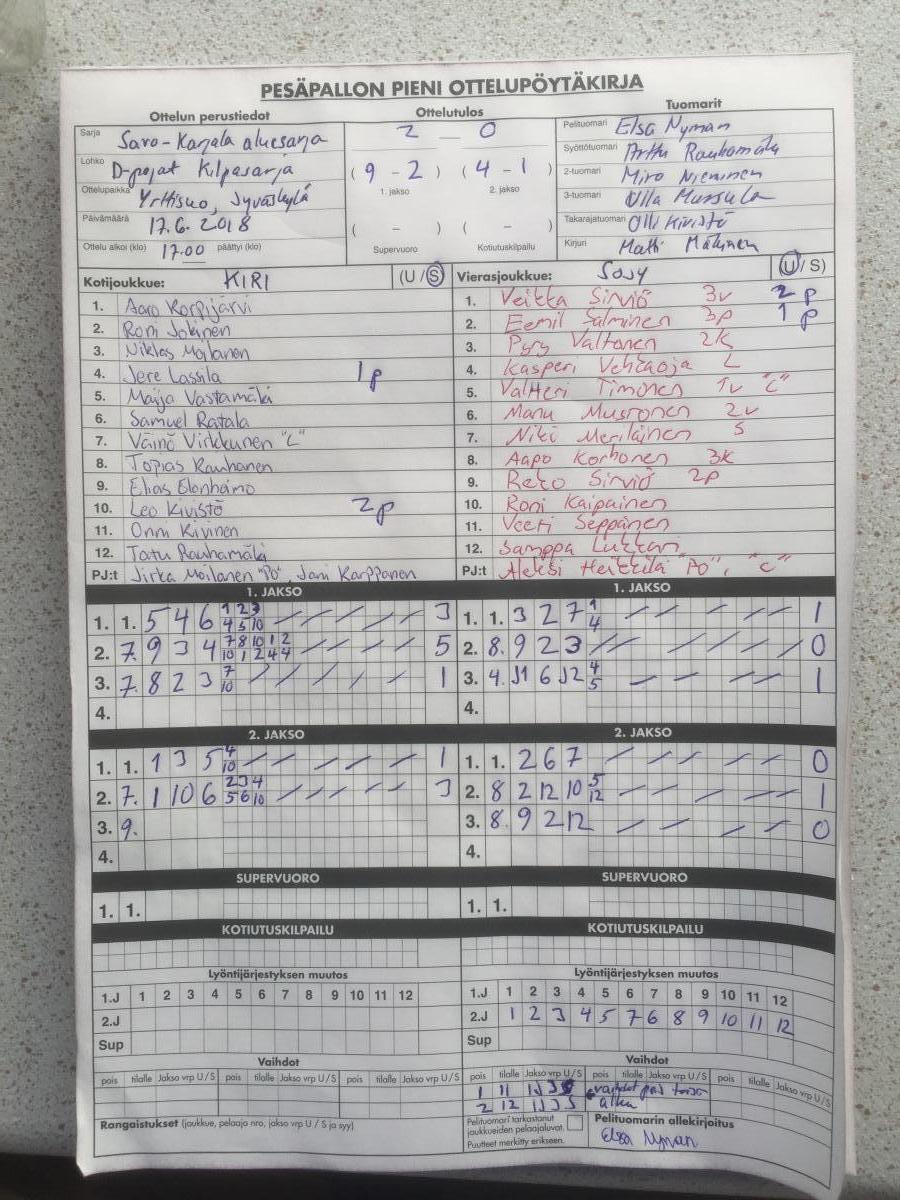 PESÄPALLON PIENI OTTELUPÖYTÄKIRJA
Ottelun perustiedot Ottelutulos Tuomarit
Sarja Savo-Karjala aluesarja 2 0 Pelituomari Elsa Nyman
Lohko D-pojat Kilpasarja (9-2) (4-1) Syöttötuomari Arttu Rauhamäki
1. jakso 2. jakso
Ottelupaikka Yrttisuo, Jyväskylä 2-tuomari Miro Nieminen
Päivämäärä 17.6.2018 ( - ) ( - ) 3-tuomari Ulla
Takarajatuomari Olli Kivistö
Ottelu alkoi (klo) 17.00 päättyi (klo) Supervuoro Kotiutuskilpailu Kirjuri Matti
Kotijoukkue: KIRI (U/S) Vierasjoukkue: SoJy (U/S)
1. Aaro Korpijärvi 1. Veikka Sirviö 3v 2p
2. Roni Jokinen 2. Eemil Salminen 3p 1p
3. Niklas Moilanen 3. Pyry Valtonen 2k
4. Jere Lassila 1p 4. Kasperi Vehkaoja L
5. Maija Vastamäki 5. Valtteri Timonen 1v "C"
6. Samuel Ratala 6. Manu Mustonen 2v
7. Väinö Virkkunen "C" 7. Niki Meriläinen S
8. Topias Rauhanen 8. Aapo Korhonen 3k
9. Elias Elonheimo 9. Reko Sirviö 2p
10. Leo Kivistö 2p 10. Roni Kaipainen
11. Onni Kivinen 11. Veeti Seppänen
12. Tatu Rauhamäki 12. Samppa
PJ:t Jirka Moilanen "PO", Jani Karppanen PJ:t Aleksi Heikkilä "PO", "C"
1. JAKSO 1. JAKSO
1. 1. 5 4 6 1 2 3 3 1. 1. 3 2 7 1 1
4 5 10 4
2. 7. 9 3 4 7 8 10 1 2 5 2. 8. 9 2 3 0
10 1 2 4 4
3. 7. 8 2 3 7 1 3. 4. 11 6 12 4 1
10 5
4. 4.
2. JAKSO 2. JAKSO
1. 1. 1 3 5 4 1 1. 1. 2 6 7 0
10
2. 7. 1 10 6 2 3 4 3 2. 8 2 12 10 5 1
5 6 10 12
3. 9. 3. 8. 9 2 12 0
4. 4.
SUPERVUORO SUPERVUORO
1. 1. 1. 1.
KOTIUTUSKILPAILU KOTIUTUSKILPAILU
Lyöntijärjestyksen muutos Lyöntijärjestyksen muutos
1.J 1 2 3 4 5 6 7 8 9 10 11 12 1.J 1 2 3 4 5 6 7 8 9 10 11 12
2.J 2.J 1 2 3 4 5 7 6 8 9 10 11 12
Sup Sup
Vaihdot Vaihdot
pois tilalle Jakso vrp U/S pois tilalle Jakso vrp U/S pois tilalle Jakso vrp U/S pois tilalle Jakso vrp U/S pois tilalle Jakso vrp U/S pois tilalle Jakso vrp U/S
1 11
2 12
Rangaistukset (joukkue, pelaaja nro, jakso vrp U / S ja syy) Pelituomari tarkastanut joukkueiden pelaajaluvat. Pelituomarin allekirjoitus
Puutteet merkitty erikseen. Elsa Nyman